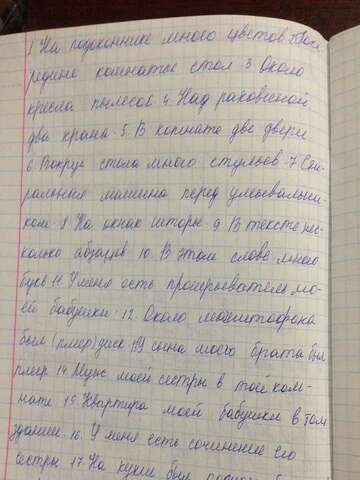 1 На подоконнике много цветов 2 Пос
редине комнаты стол 3. Около
кресла пылесос 4. Над раковиной
два крана. 5. В комнате две двери
6 Вокруг стола много стульев. 7 Сти-
ральная машина перед умывальни-
ком. 8. На окнах шторы. 9. В тексте нес-
колько абзацев 10. В этом слове много
букв 11. У меня есть проигрыватель мо-
ей бабушки. 12. Около магнитофона
был (плеер) диск 13 У сына моего брата был
плеер 14. Муж моей сестры в той ком-
нате 15 Квартира моей бабушки в том
здании. 16. У меня есть сочинение его
сестры 17. На кухне был